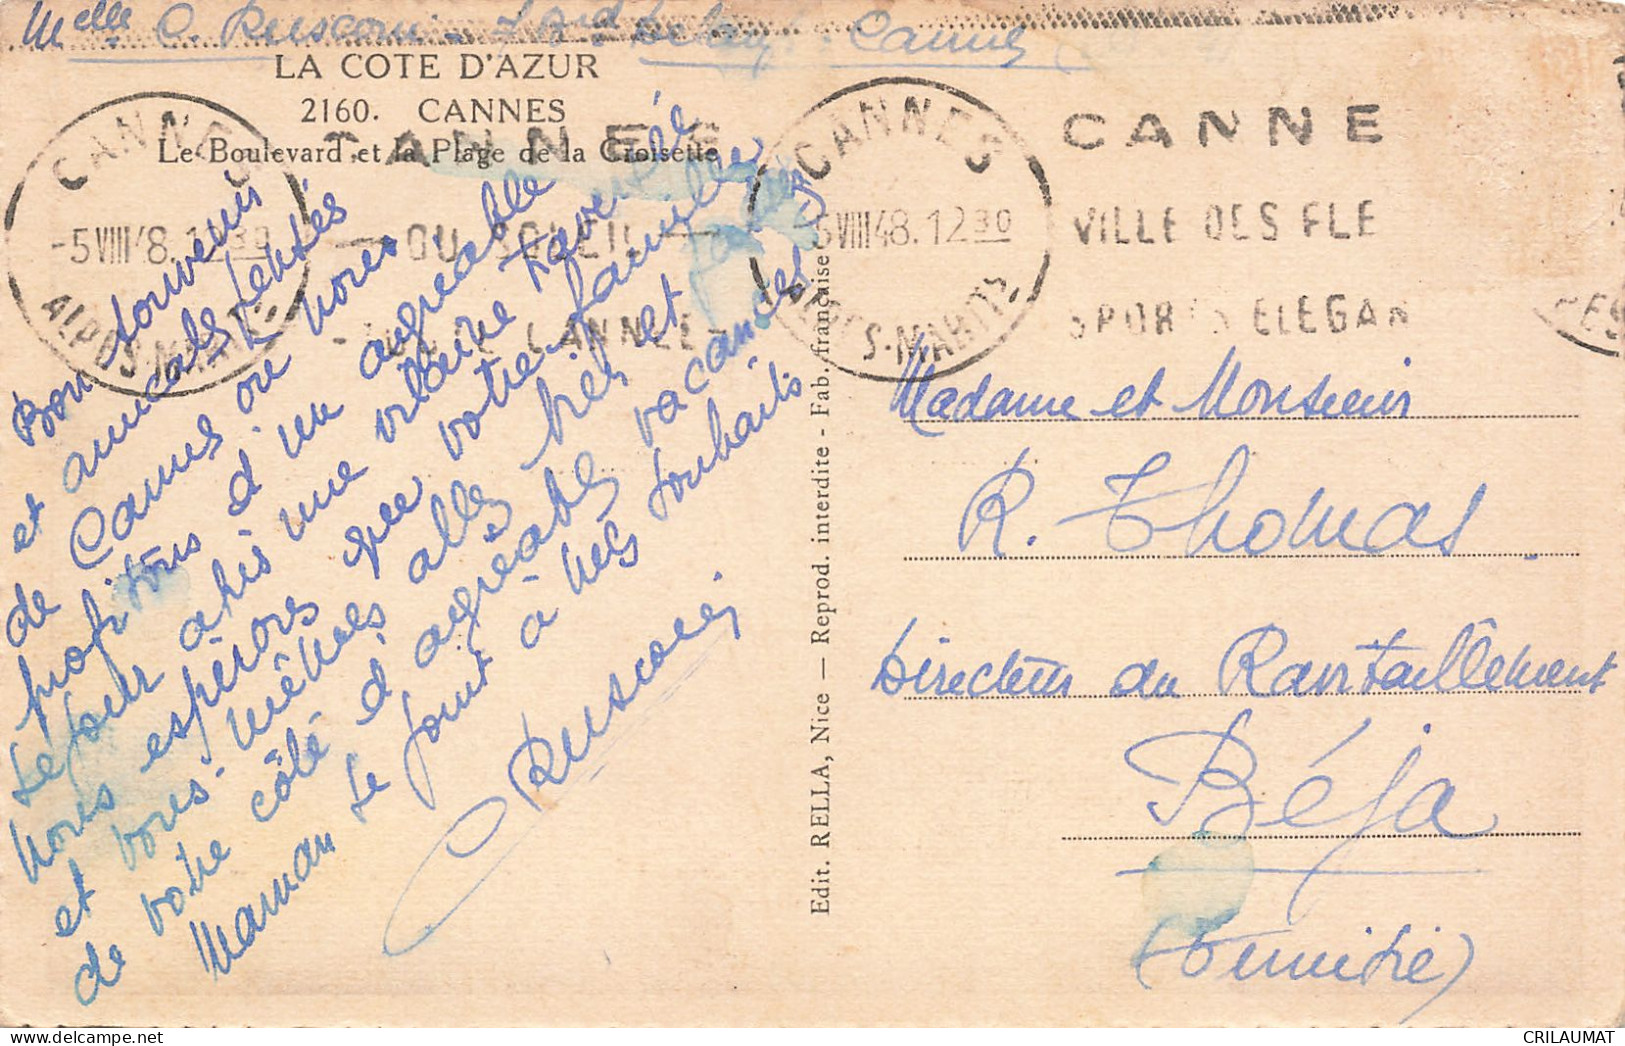 Melle C. Ruscorii - 7 Bd Cannes
LA COTE D'AZUR
2160. CANNES
Le Boulevard et la Plage de la Croisette
CANNES
-5VIII48.1230
ALPES-MARITES
CANNES
DU SOLEIL
CANNES
5VIII48.1230
ALPES-MARITES
CANNE
VILLE DES FLE
SPORTS ELEGAN
Bons souvenirs
et amicales pensées
de Cannes où nous
profitons d'un agréable
séjour après une
nous espérons que votre famille
et vous-mêmes allez bien et
de votre côté d'agréables vacances
Maman se joint à mes souhaits
CRuscorii
Edit. RELLA, Nice — Reprod. interdite - Fab. française
Madame et Monsieur
R. Thomas
Directeur du Ravitaillement
Béja
(Tunisie)
CRILAUMAT